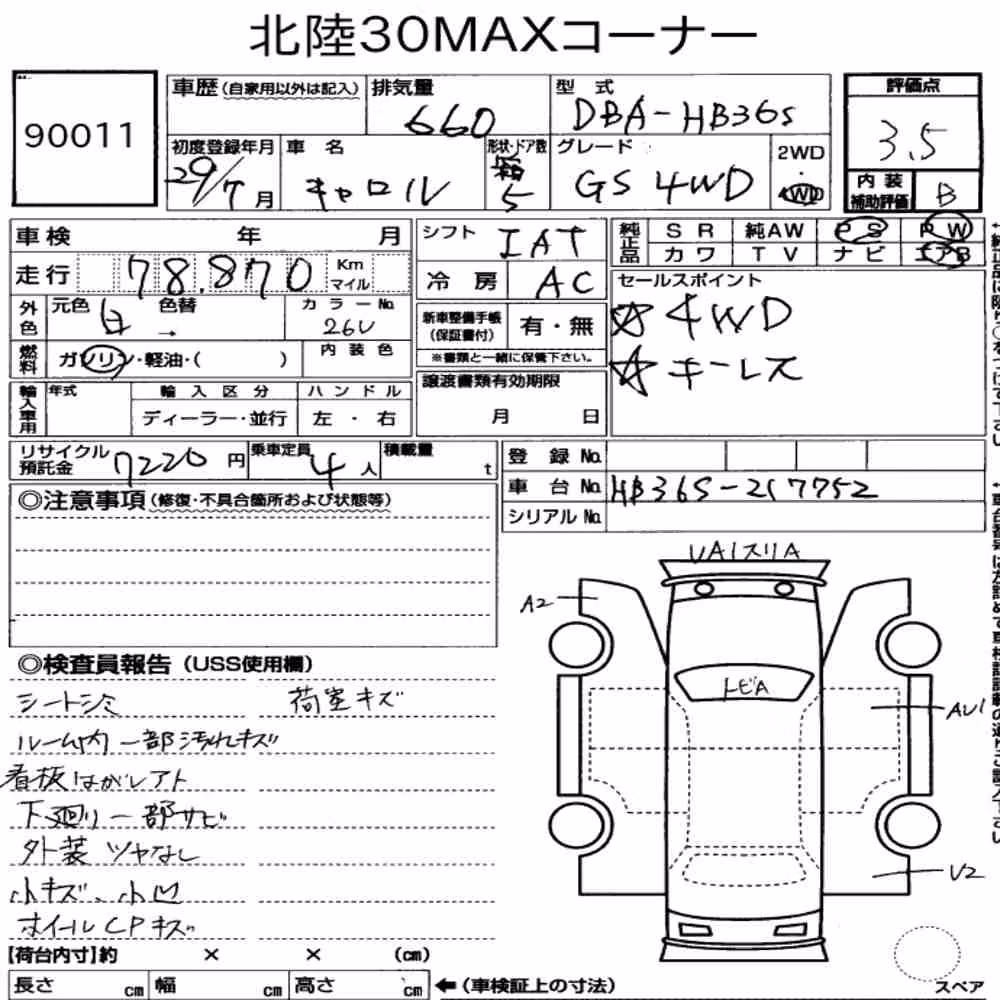 北陸30MAXコーナー
90011
車歴 (自家用以外は記入) 排気量 660 型式 DBA-HB36S 評価点 3.5
初度登録年月 29/7月 車名 キャロル 形状・ドア数 箱 5 グレード GS 4WD 2WD・4WD 内装補助評価 B
車検 年 月 シフト IAT 純正品 SR 純AW PS PW
走行 78,870 Km マイル 冷房 AC カワ TV ナビ エアB
外色 元色 白 色替 → カラーNo. 26U
新車整備手帳(保証書付) 有・無
※書類と一緒に保管下さい。
セールスポイント
☆4WD
☆キーレス
燃料 ガソリン・軽油・( ) 内装色
輸入車用 年式 輸入区分 ハンドル
ディーラー・並行 左・右
譲渡書類有効期限
月 日
リサイクル預託金 7220円 乗車定員 4人 積載量 t
登録No.
車台No. HB36S-217752
シリアルNo.
◎注意事項 (修復・不具合箇所および状態等)
◎検査員報告 (USS使用欄)
シートシミ 荷室キズ
ルーム内一部汚れキズ
看板はがしアト
下廻り一部サビ
外装ツヤなし
小キズ、小凹
ホイールCPキズ
UA1スリA
A2
トビA
AU1
U2
スペア
【荷台内寸】約 × × (cm)
長さ cm 幅 cm 高さ cm ←(車検証上の寸法)